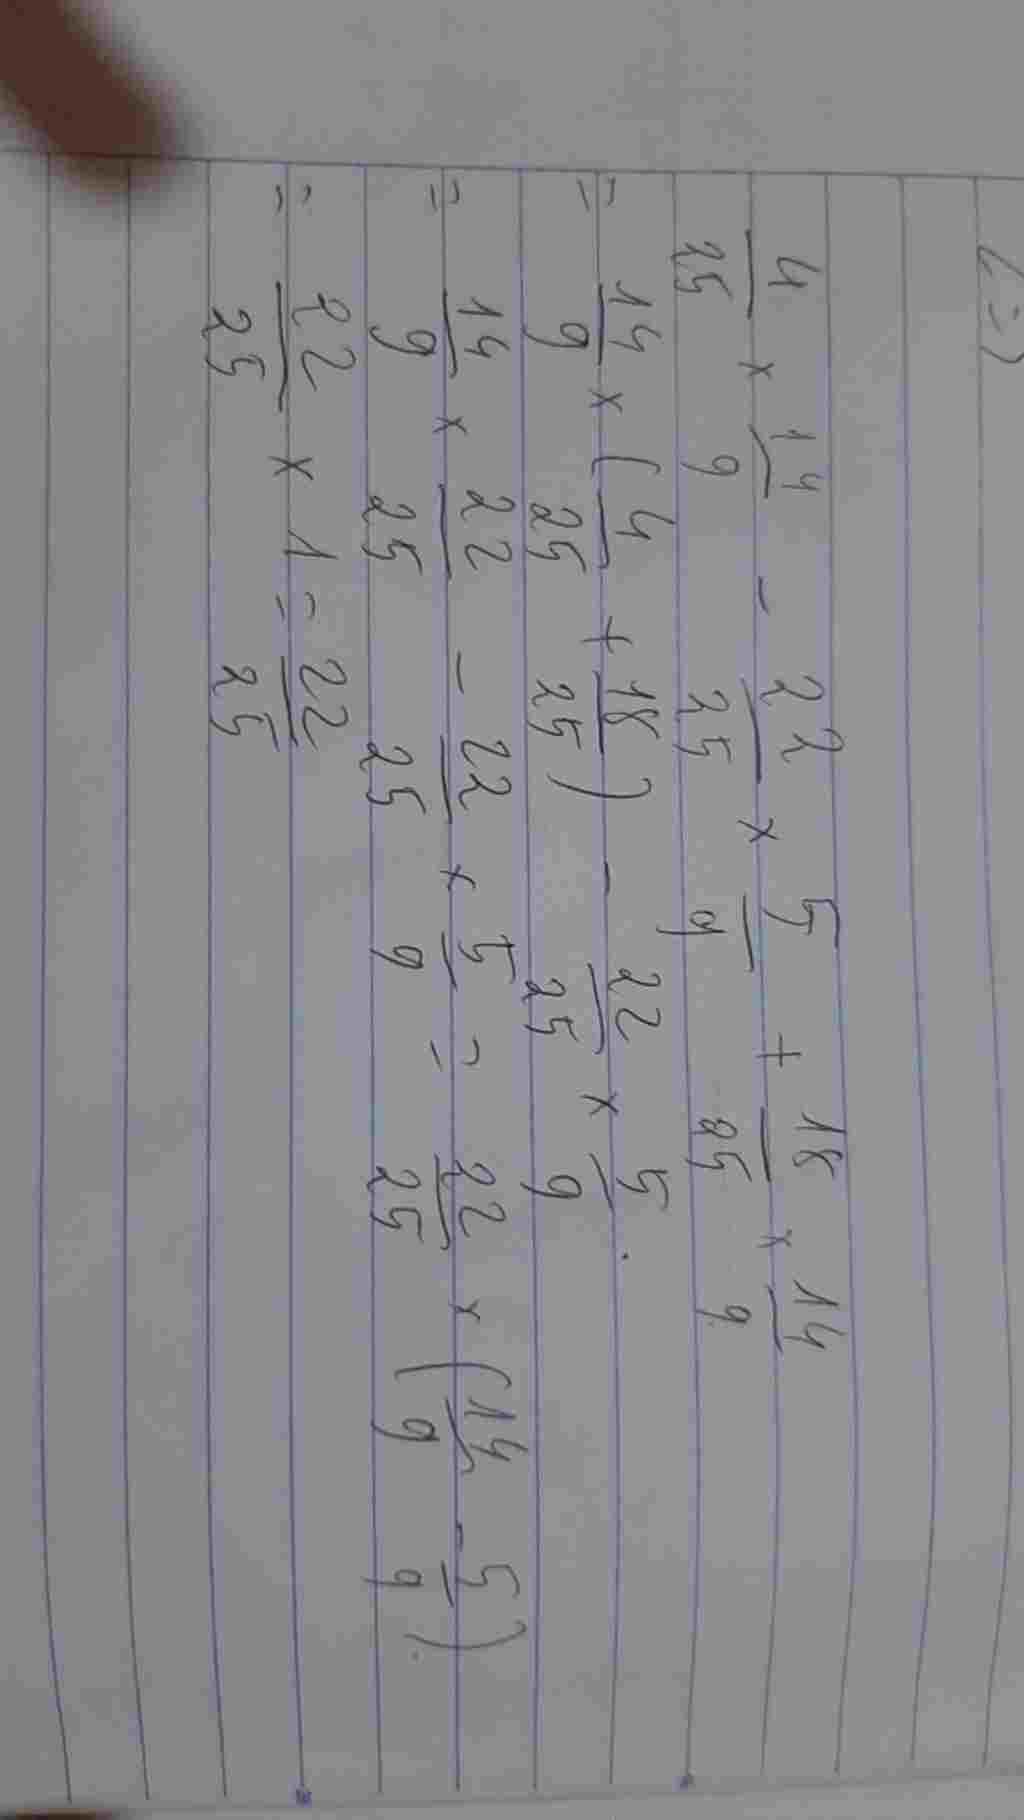 4/25 × 14/9 - 22/25 × 5/9 + 18/25 × 14/9
= 14/9 × (4/25 + 18/25) - 22/25 × 5/9.
= 14/9 × 22/25 - 22/25 × 5/9 = 22/25 × (14/9 - 5/9).
= 22/25 × 1 = 22/25